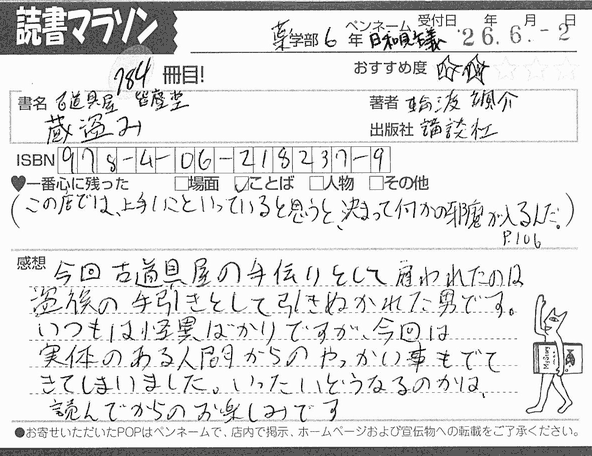 読書マラソン
184冊目!
薬学部6年 ペンネーム 日和見主義 受付日 '26.6.-2 年月日
おすすめ度 ☆☆☆☆☆
書名 古道具屋 皆塵堂
蔵盗み
著者 輪渡颯介
出版社 講談社
ISBN 978-4-06-218237-9
♥一番心に残った □場面 ☑ことば □人物 □その他
(この店では、上手いこといっていると思うと、決まって何かの邪魔が入るんだ。)
P.106
感想 今回古道具屋の手伝いとして雇われたのは
盗族の手引きとして引きぬかれた男です。
いつもは怪異ばかりですが、今回は
実体のある人間からのやっかい事もでて
きてしまいました。いったいどうなるのかは、
読んでからのお楽しみです
●お寄せいただいたPOPはペンネームで、店内で掲示、ホームページおよび宣伝物への転載をご了承ください。